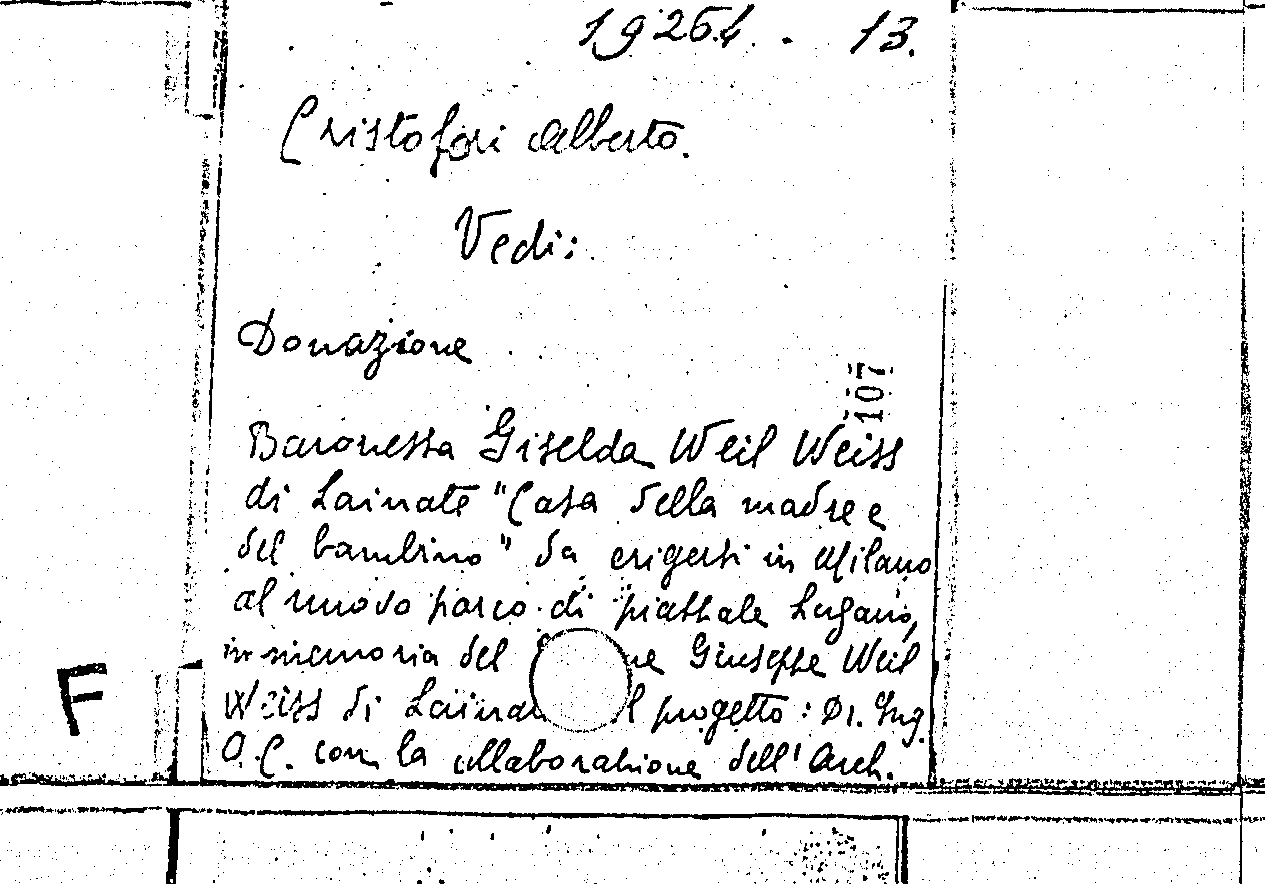 19264. - 13.
Cristofori Alberto.
Vedi:
Donazione
107
Baronessa Giselda Weil Weiss
di Lainate "Casa della madre e
del bambino" da erigersi in Milano
al nuovo parco di piazzale Lugano,
in memoria del Giuseppe Weil
Weiss di progetto: Dr. Ing.
A. C. con la collaborazione dell'Arch.
F